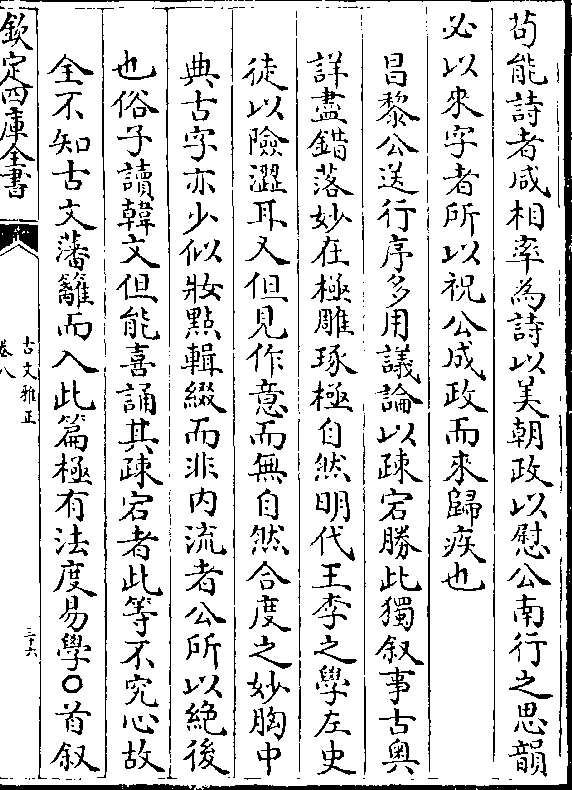 苟能詩者咸相率為詩以美朝政以慰公南行之思韻
必以來字者所以祝公成政而來歸疾也
昌黎公送行序多用議論以疎宕勝此獨叙事古奥
詳盡錯落妙在極雕琢極自然明代王李之學左史
徒以險澀耳又但見作意而無自然合度之妙胸中
典古字亦少似妝點輯綴而非内流者公所以絶後
也俗子讀韓文但能喜誦其疎宕者此等不究心故
全不知古文藩籬而入此篇極有法度易學○首叙
欽定四庫全書
古文雅正
卷八
三十六